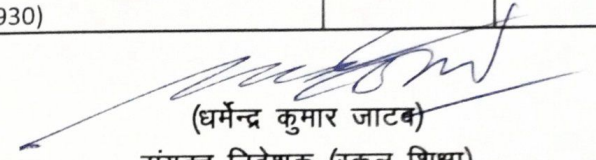 930)
(धर्मेन्द्र कुमार जाटव)
संयुक्त निदेशक (स्कूल शिक्षा)